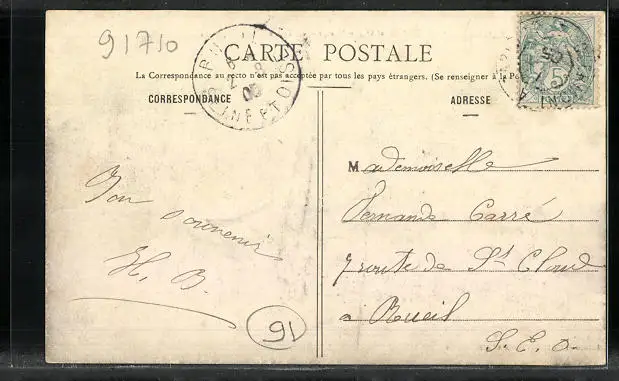 91710
CARTE POSTALE
La Correspondance au recto n'est pas acceptée par tous les pays étrangers. (Se renseigner à la Po
CORRESPONDANCE
ADRESSE
Bon souvenir
H. B.
91
Mademoiselle
Fernande Carré
7 route de St Cloud
a Rueil
S. E. O.
5c